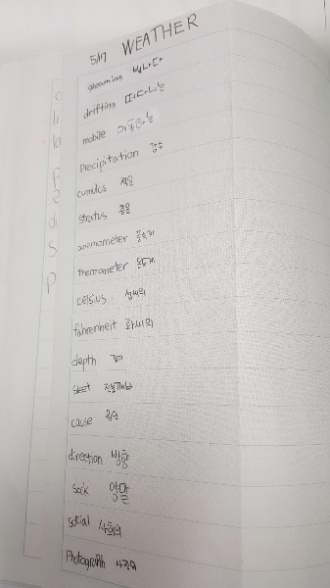 5/17 WEATHER
gleaming 빛나다
drifting 떠다니는
mobile 이동하는
Precipitation 강수
cumulus 적운
stratus 층운
anemometer 풍속계
thermometer 온도계
celsius 섭씨의
fahrenheit 화씨의
depth 깊이
sleet
cause
direction 방향
sock 양말
social 사회의
Photograph